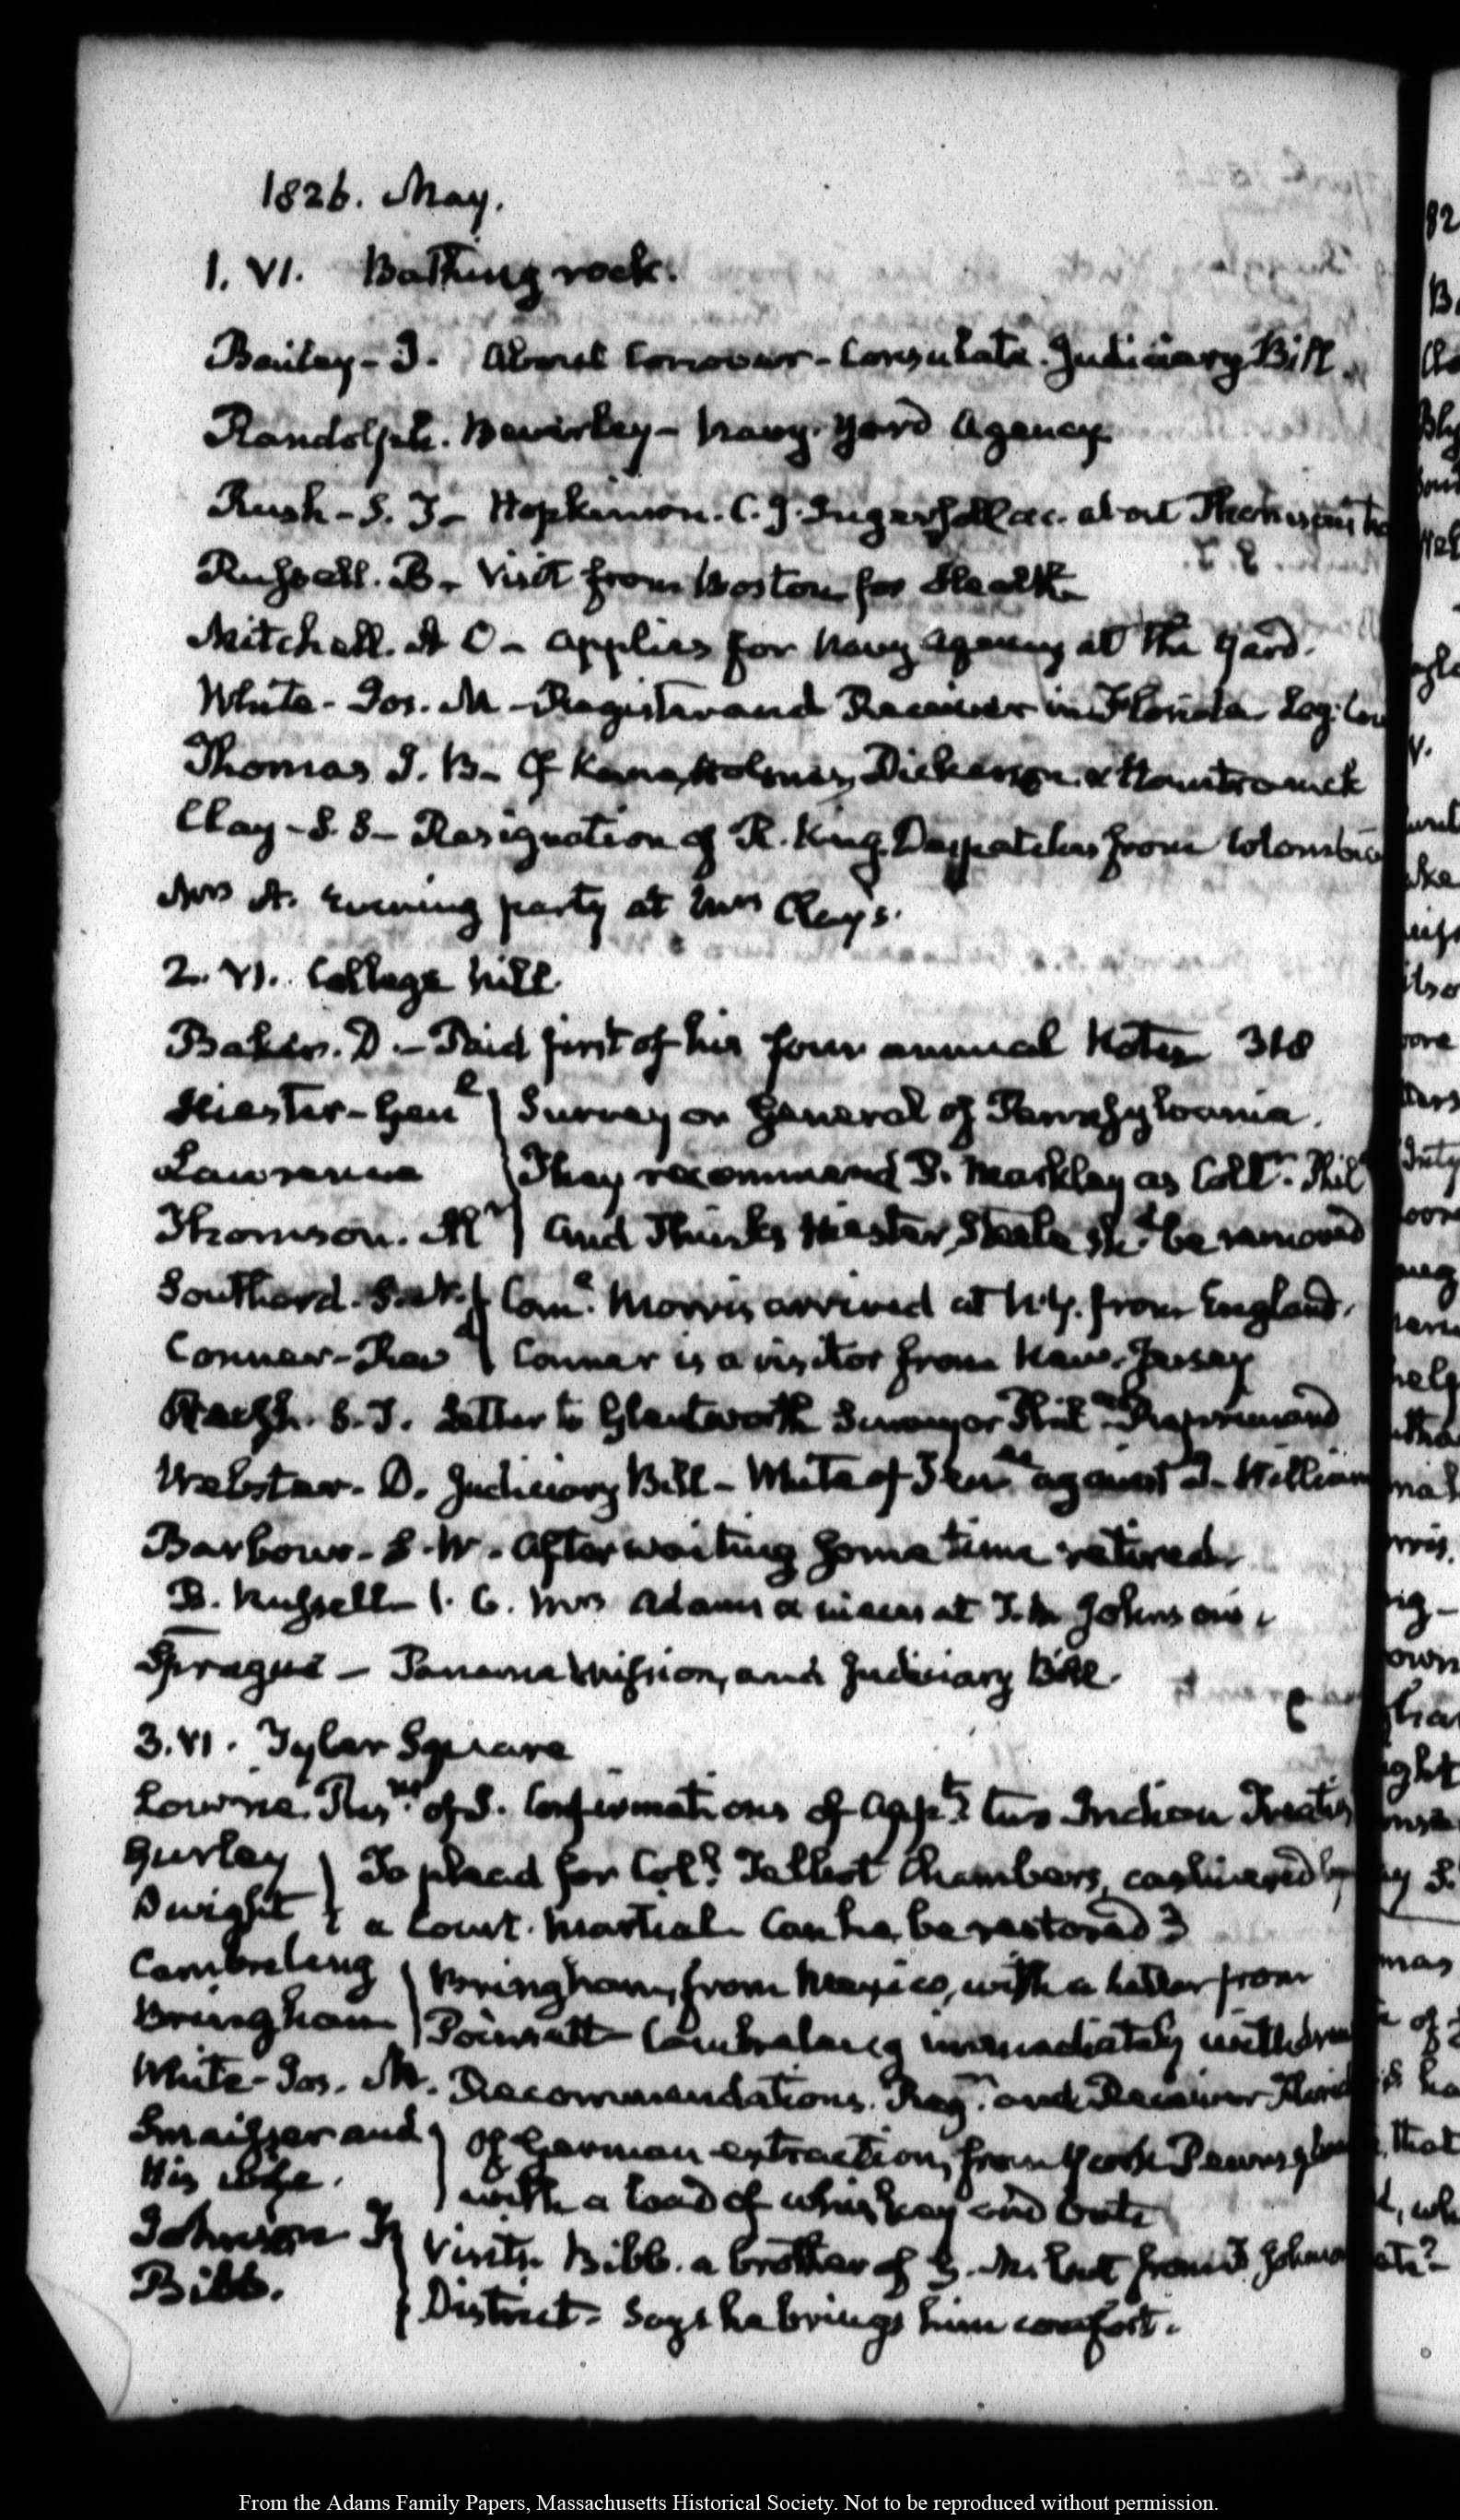 1826. May.
1. VI. Bathing rock.
Bailey - J. about Conover - Consulate. Judiciary Bill.
Randolph. Beverley - Navy-Yard Agency
Rush - S. T - Hopkinson. C. J. Ingersoll &c. about Thomson's
Russell. B - Visit from Boston for Health
Mitchell. A C - applies for Navy Agency at the Yard.
White - Jos. M - Register and Receiver in Florida Leg. Cou
Thomas J. B - Of Kane, Holmes, Dickerson &
Clay - S. S - Resignation of R. King. Despatches from Colombia
Mrs A. Evening party at Mrs Clay's.
2. VI. College hill.
Baker. D. - Paid first of his four annual Notes 318
Hiester - Genl } Surveyor General of Pennsylvania.
Lawrence } They recommend P. Markley as Collr. Phil
Thomson. Mr } and Thinks Hiester, Steele shd. be removed
Southard. } Come. Morris arrived at N.Y. from England.
Conner - Revd } Conner is a visitor from New-Jersey
Rush. S. T. Letter to Glentworth Surveyor Phila. Reprimand
Webster - D. Judiciary Bill - White of Tenn against J. William
Barbour - S. W - After waiting some time retired.
B. Russell - Mrs Adams a at Johnson's.
Sprague - Panama Mission, and Judiciary Bill.
3. VI. Tyler Square
Lowrie. of S. Confirmations of Appts. two Indian Treaties
Gurley } To plead for Coll. Talbot Chambers, cashiered by
Dwight } a Court-Martial. Can he be restored?
Cambreleng } Bringham, from Mexico, with a letter from
Bringham } Poinsett - Cambreleng immediately withdrew
White - Jos. M. Recommendations. Regr. and Receiver Florid
Smaisser and } of German extraction, from York Pennsylva
his wife. } with a load of whiskey and oats
Johnson } Visits. Bibb. a brother of G. M. but from J Johnson
Bibb. } District - Says he brings him comfort.
From the Adams Family Papers, Massachusetts Historical Society. Not to be reproduced without permission.